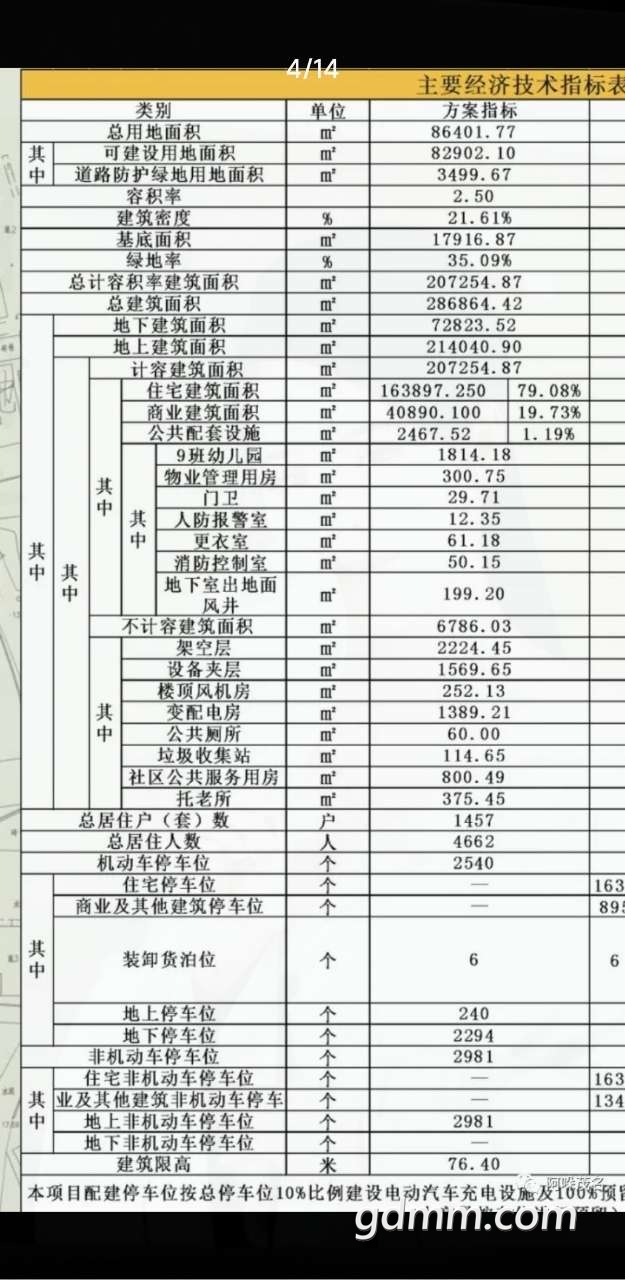 4/14
主要经济技术指标表
类别 单位 方案指标
总用地面积 ㎡ 86401.77
其中 可建设用地面积 ㎡ 82902.10
道路防护绿地用地面积 ㎡ 3499.67
容积率 2.50
建筑密度 % 21.61%
基底面积 ㎡ 17916.87
绿地率 % 35.09%
总计容积率建筑面积 ㎡ 207254.87
总建筑面积 ㎡ 286864.42
其中 地下建筑面积 ㎡ 72823.52
地上建筑面积 ㎡ 214040.90
其中 计容建筑面积 ㎡ 207254.87
其中 住宅建筑面积 ㎡ 163897.250 79.08%
商业建筑面积 ㎡ 40890.100 19.73%
公共配套设施 ㎡ 2467.52 1.19%
其中 9班幼儿园 ㎡ 1814.18
物业管理用房 ㎡ 300.75
门卫 ㎡ 29.71
人防报警室 ㎡ 12.35
更衣室 ㎡ 61.18
消防控制室 ㎡ 50.15
地下室出地面
风井 ㎡ 199.20
不计容建筑面积 ㎡ 6786.03
其中 架空层 ㎡ 2224.45
设备夹层 ㎡ 1569.65
楼顶风机房 ㎡ 252.13
变配电房 ㎡ 1389.21
公共厕所 ㎡ 60.00
垃圾收集站 ㎡ 114.65
社区公共服务用房 ㎡ 800.49
托老所 ㎡ 375.45
总居住户（套）数 户 1457
总居住人数 人 4662
机动车停车位 个 2540
其中 住宅停车位 个 — 163
商业及其他建筑停车位 个 — 895
装卸货泊位 个 6 6
地上停车位 个 240
地下停车位 个 2294
非机动车停车位 个 2981
其中 住宅非机动车停车位 个 — 163
业及其他建筑非机动车停车 个 — 134
地上非机动车停车位 个 2981
地下非机动车停车位 个 —
建筑限高 米 76.40
本项目配建停车位按总停车位10%比例建设电动汽车充电设施及100%预留
阿哚茂名
gdmm.com